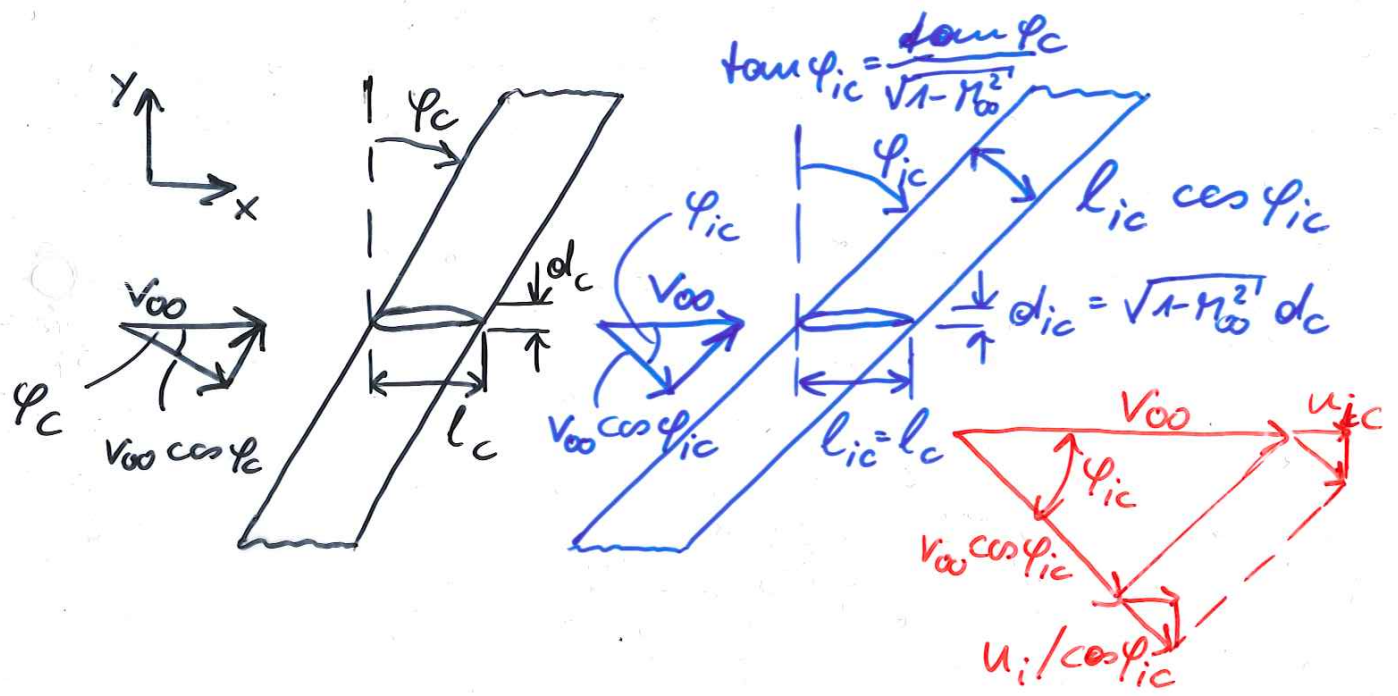 Y
X
φc
V∞
φc
V∞ cos φc
dc
lc
tan φic = tan φc / √(1-M∞²)
φic
lic cos φic
φic
V∞
V∞ cos φic
dic = √(1-M∞²) dc
lic = lc
V∞
uic
φic
V∞ cos φic
ui/cos φic